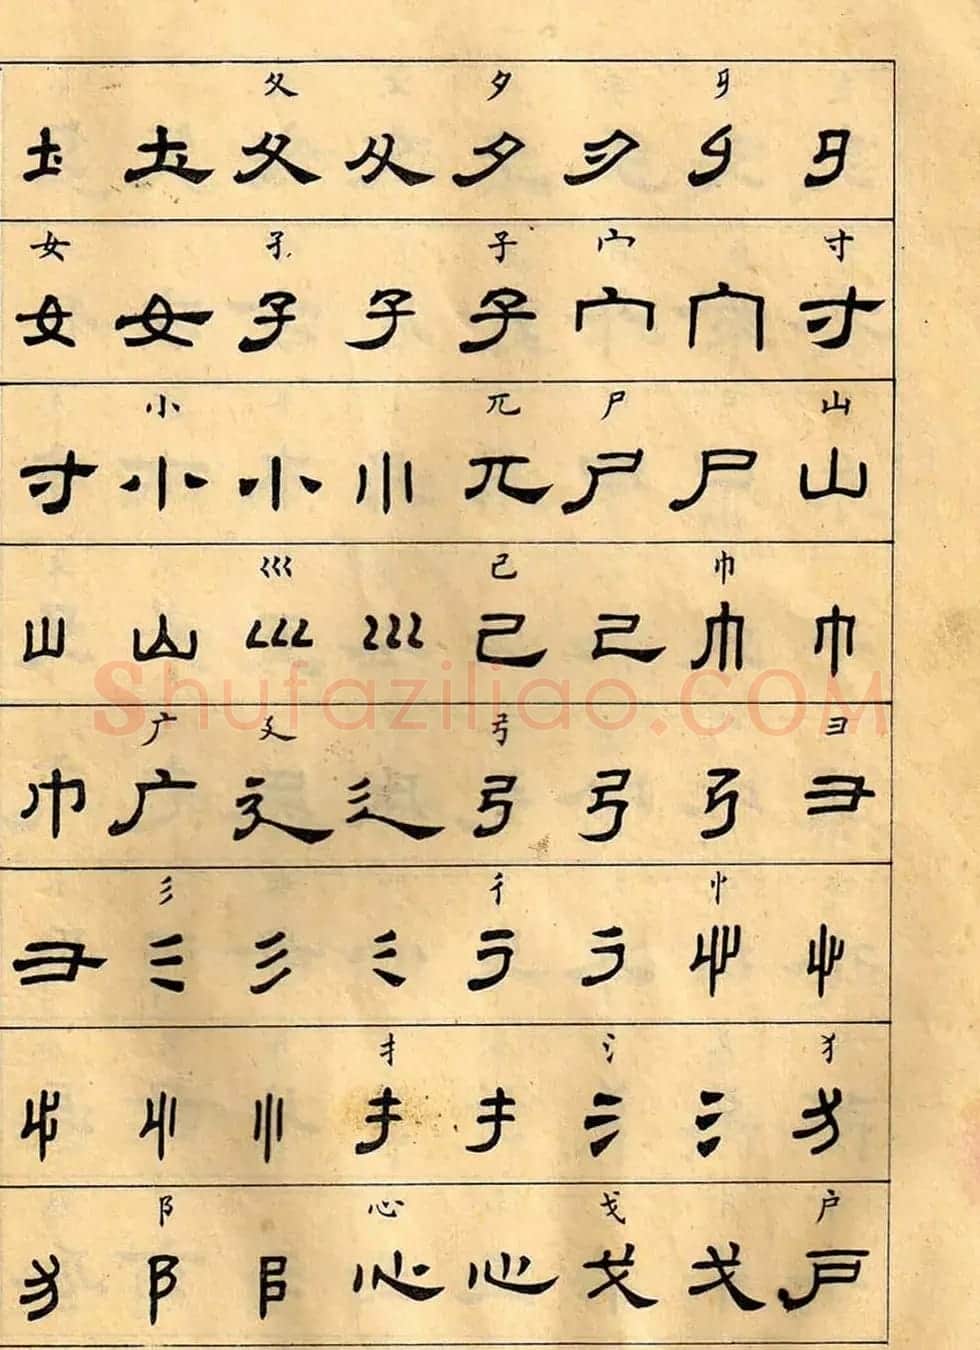 夂 夕 𠃛
土 土 夂 夂 夕 夕
女 孑 子 宀 寸
女 女 子 子 子 宀 宀 寸
小 兀 尸 山
寸 小 小 小 兀 尸 尸 山
巛 己 巾
山 山 巛 巛 己 己 巾 巾
Shufaziliao.COM
广 廴 弓 彐
巾 广 廴 廴 弓 弓 弓 彐
彡 彳 忄
彐 彡 彡 彡 彳 彳 忄 忄
扌 氵 犭
忄 忄 忄 扌 扌 氵 氵 犭
阝 心 戈 户
犭 阝 阝 心 心 戈 戈 户